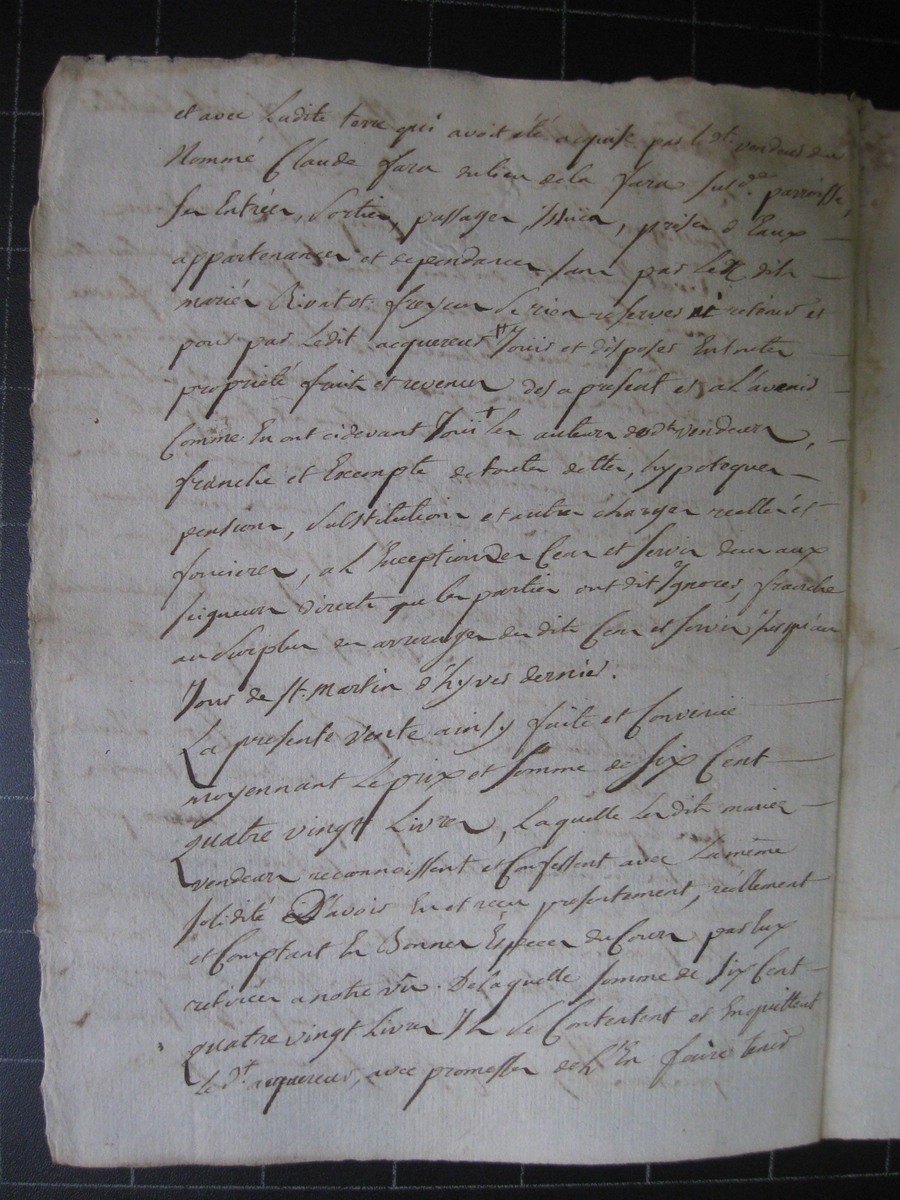 et avec Ladite terre qui avoit été acquise par led.t vendeur du
Nommé Claude fara du lieu de la fara susd.e parroisse,
ses Entrées, Sorties, passages, issües, prises d'Eaux
appartenances et dependances sans par Lesdits
mariés Rivat et freycon de rien reserver ni retenir et
pour par Ledit acquereur Jouir et disposer En toute
propriété fruits et revenus des a present et a L'avenir
Comme En ont cidevant Joui les auteurs desd.ts vendeurs,
franche et Exempte de toutes dettes, hypoteques
pensions, Substitutions et autres charges reelles et
foncieres, a L'Exception des Cens et servis deus aux
seigneurs directs que les parties ont dit Ignorer, franche
au Surplus des arrerages desdits Cens et servis Jusqu'au
Jour de St. Martin d'hyver dernier.
La presente vente ainsy faite et Convenüe
moyennant Le prix et Somme de Six Cent
quatre vingt Livres, Laquelle Lesdits mariés
vendeurs reconnoissent et Confessent avec La même
solidité D'avoir Eu et reçu presentement, reéllement
et Comptant En Bonnes Espèces du Cours par Eux
retirées a notre vüe. De laquelle Somme de Six Cent
quatre vingt Livres Ils Se Contentent et En quittent
le d.t acquereur, avec promesse de L'En faire tenir